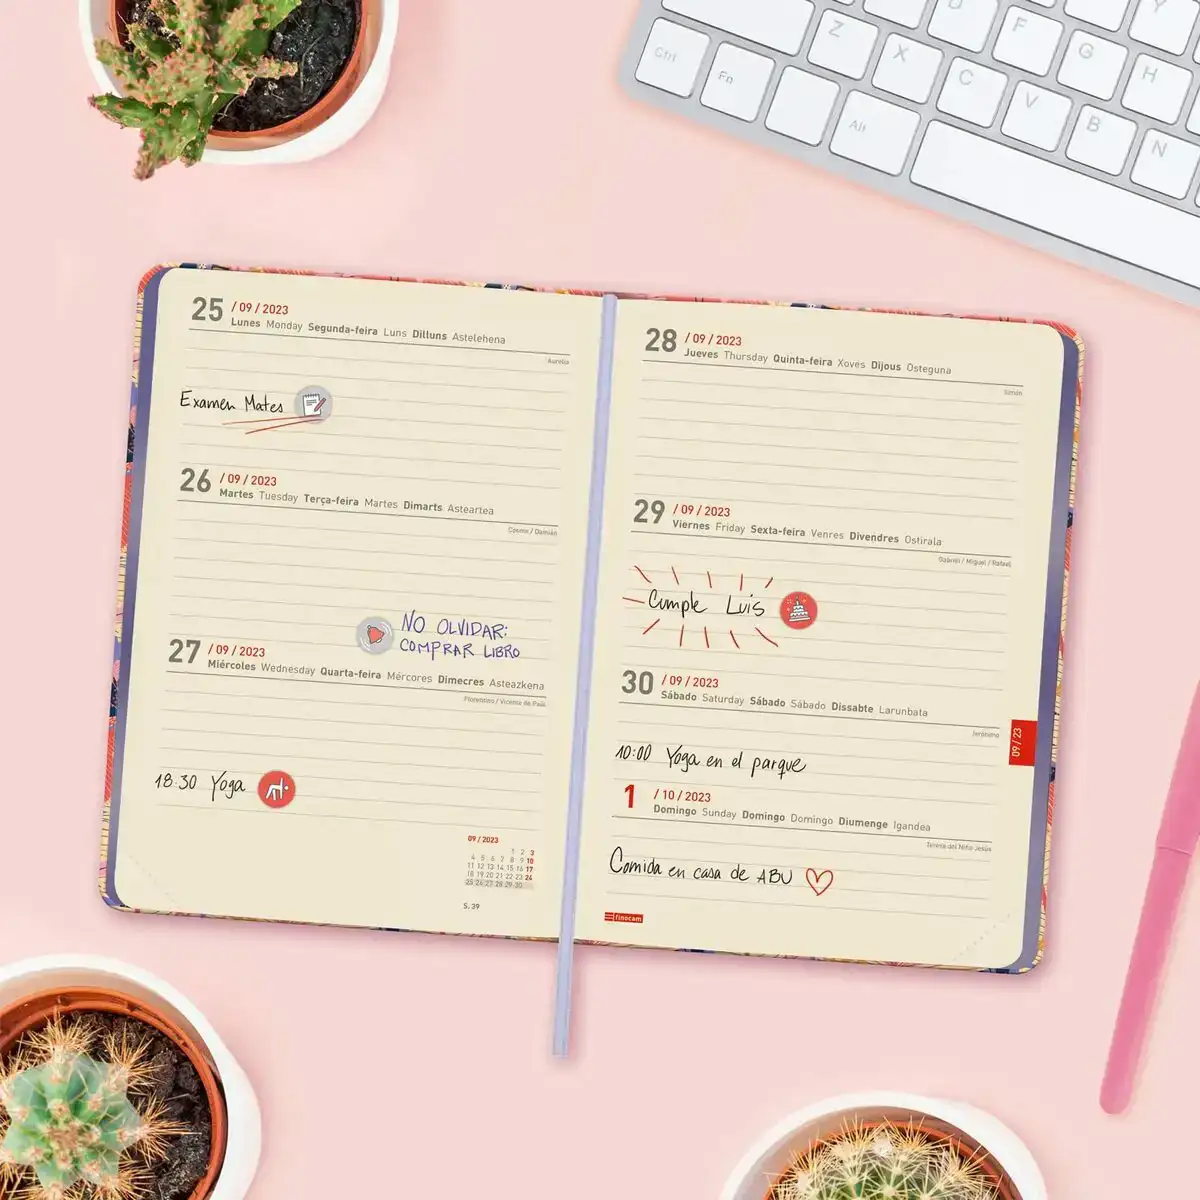 25 / 09 / 2023
Lunes Monday Segunda-feira Luns Dilluns Astelehena
Aurelia
Examen Mates
26 / 09 / 2023
Martes Tuesday Terça-feira Martes Dimarts Asteartea
Cosme / Damián
NO OLVIDAR:
COMPRAR LIBRO
27 / 09 / 2023
Miércoles Wednesday Quarta-feira Mércores Dimecres Asteazkena
Florentino / Vicente de Paúl
18:30 Yoga
09 / 2023
1 2 3
4 5 6 7 8 9 10
11 12 13 14 15 16 17
18 19 20 21 22 23 24
25 26 27 28 29 30
S. 39
28 / 09 / 2023
Jueves Thursday Quinta-feira Xoves Dijous Osteguna
Simón
29 / 09 / 2023
Viernes Friday Sexta-feira Venres Divendres Ostirala
Gabriel / Miguel / Rafael
Cumple Luis
30 / 09 / 2023
Sábado Saturday Sábado Sábado Dissabte Larunbata
Jerónimo
10:00 Yoga en el parque
09 / 23
1 / 10 / 2023
Domingo Sunday Domingo Domingo Diumenge Igandea
Teresa del Niño Jesús
Comida en casa de ABU
finocam
D F Y
Z X G H
Ctrl Fn C V B N
Alt